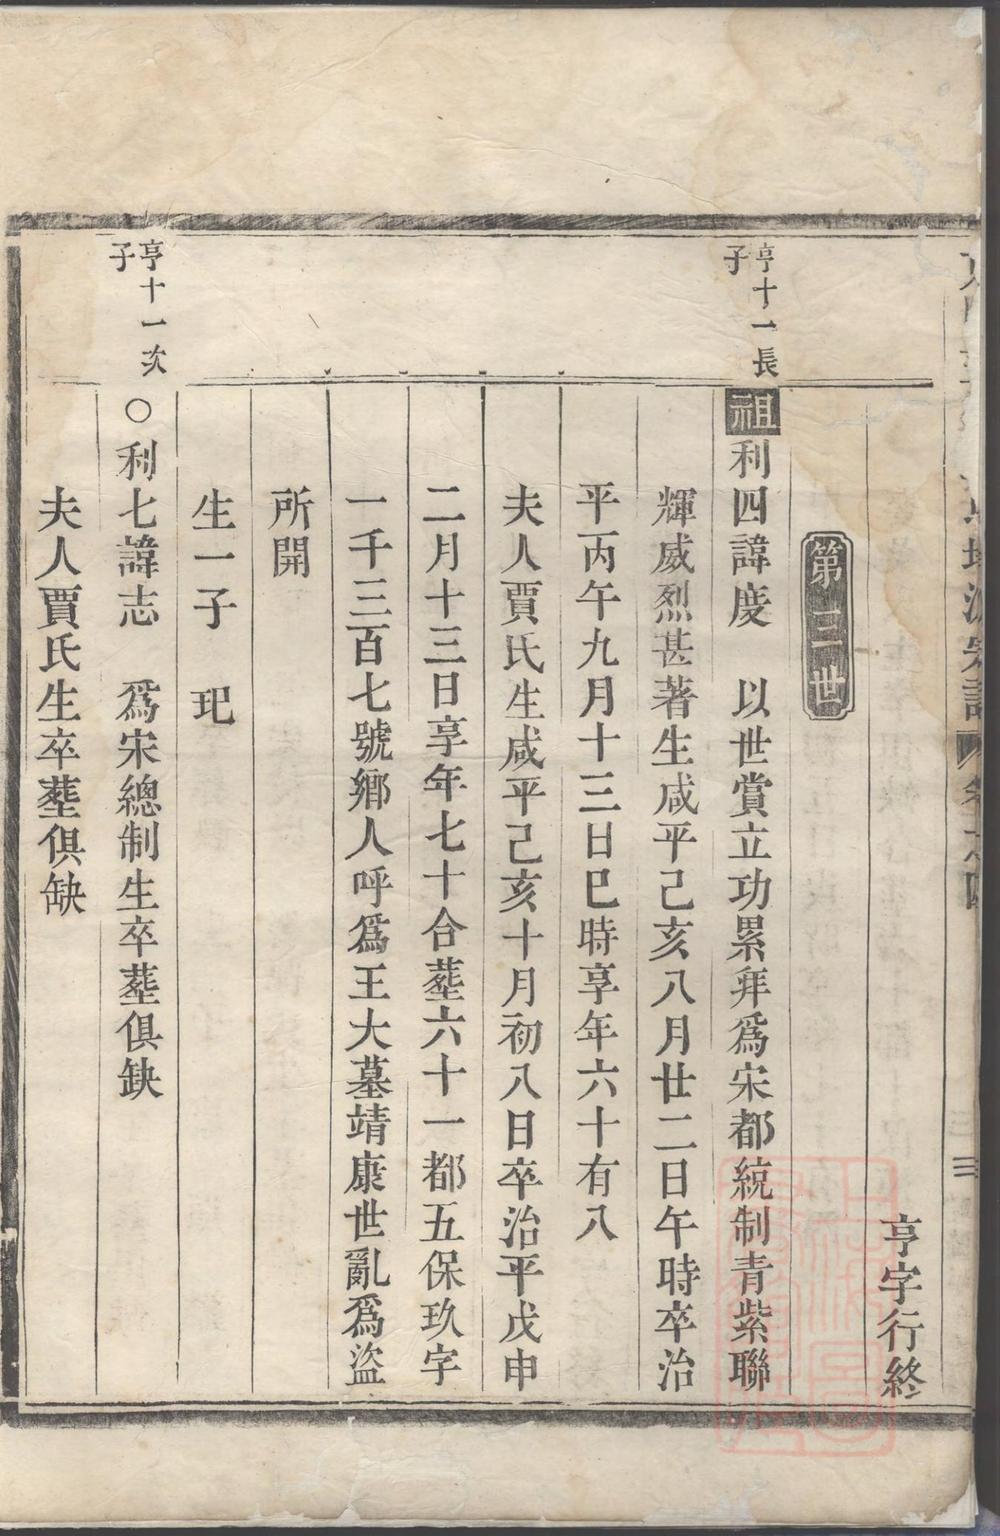 亨字行終
第三世
亨十一長子
祖利四諱度　以世賞立功累拜爲宋都統制青紫聯
輝威烈甚著生咸平己亥八月廿二日午時卒治
平丙午九月十三日巳時享年六十有八
夫人賈氏生咸平己亥十月初八日卒治平戊申
二月十三日享年七十合塟六十一都五保玖字
一千三百七號鄉人呼爲王大墓靖康世亂爲盜
所開
生一子　玘
亨十一次子
○利七諱志　爲宋總制生卒塟俱缺
夫人賈氏生卒塟俱缺